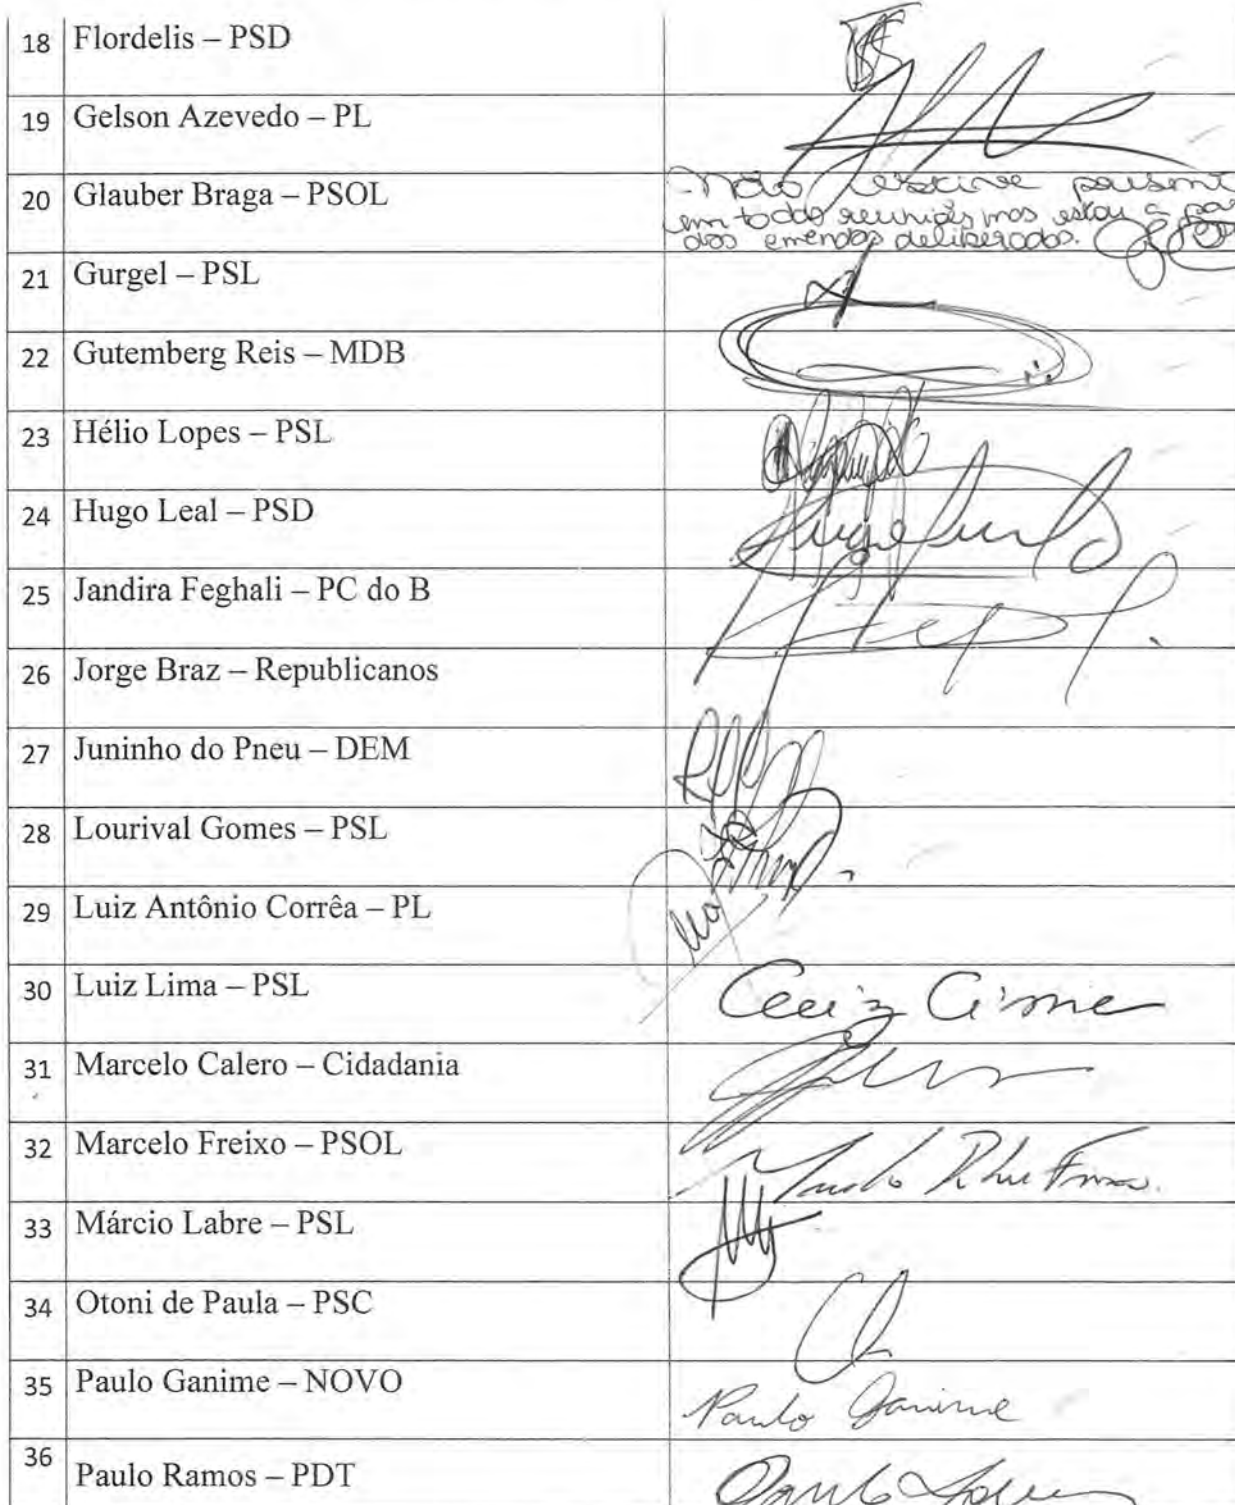 18 Flordelis – PSD
19 Gelson Azevedo – PL
20 Glauber Braga – PSOL
Não estive present
em todas reuniões mas estou a par
das emendas deliberadas.
21 Gurgel – PSL
22 Gutemberg Reis – MDB
23 Hélio Lopes – PSL
24 Hugo Leal – PSD
25 Jandira Feghali – PC do B
26 Jorge Braz – Republicanos
27 Juninho do Pneu – DEM
28 Lourival Gomes – PSL
29 Luiz Antônio Corrêa – PL
30 Luiz Lima – PSL Luiz Lima
31 Marcelo Calero – Cidadania
32 Marcelo Freixo – PSOL
33 Márcio Labre – PSL
34 Otoni de Paula – PSC
35 Paulo Ganime – NOVO Paulo Ganime
36 Paulo Ramos – PDT Paulo